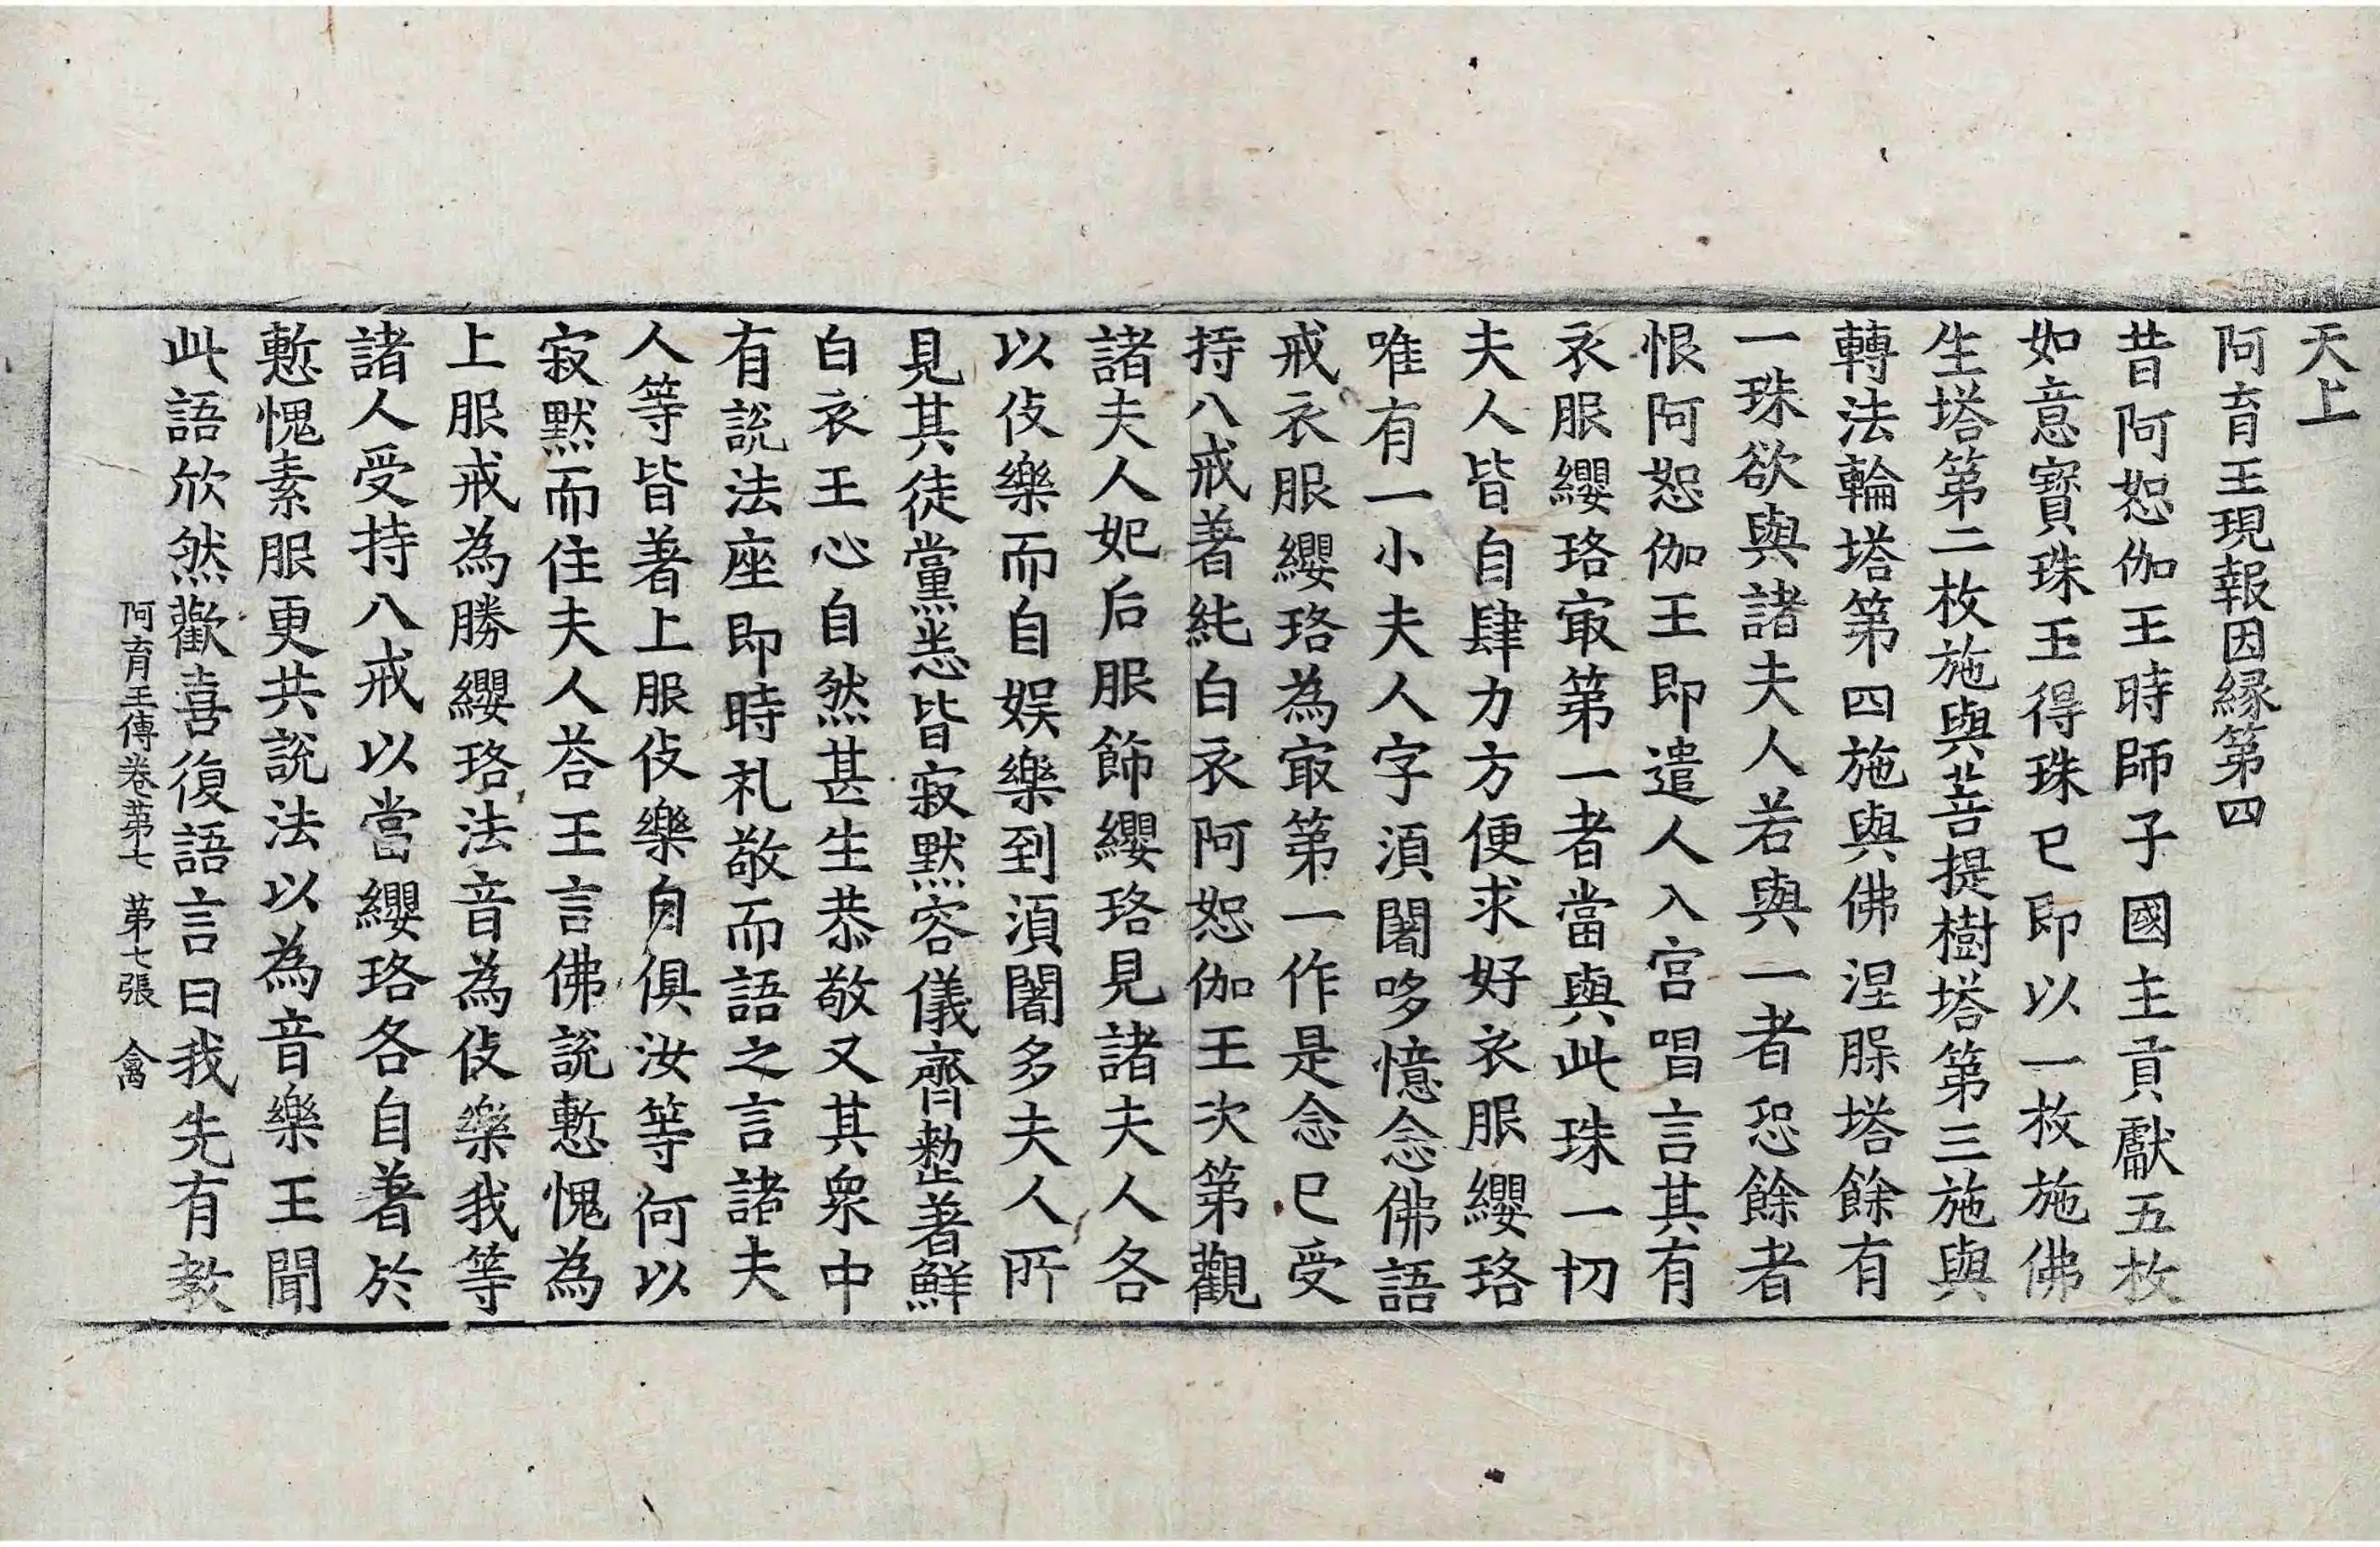 天上
阿育王現報因縁第四
昔阿恕伽王時師子國主貢獻五枚
如意寶珠王得珠已即以一枚施佛
生塔第二枚施與菩提樹塔第三施與
轉法輪塔第四施與佛涅槃塔餘有
一珠欲與諸夫人若與一者恐餘者
恨阿恕伽王即遣人入宫唱言其有
衣服纓珞㝡第一者當與此珠一切
夫人皆自肆力方便求好衣服纓珞
唯有一小夫人字湏闍哆憶念佛語
戒衣服纓珞為㝡第一作是念已受
持八戒著純白衣阿恕伽王次第觀
諸夫人妃后服飾纓珞見諸夫人各
以伎樂而自娱樂到湏闍多夫人所
見其徒黨悉皆寂默容儀齊整著鮮
白衣王心自然甚生恭敬又其衆中
有説法座即時礼敬而語之言諸夫
人等皆著上服伎樂自俱汝等何以
寂默而住夫人荅王言佛説慙愧為
上服戒為勝纓珞法音為伎樂我等
諸人受持八戒以當纓珞各自著於
慙愧素服更共説法以為音樂王聞
此語欣然歡喜復語言曰我先有教
阿育王傳卷苐七 苐七張 禽